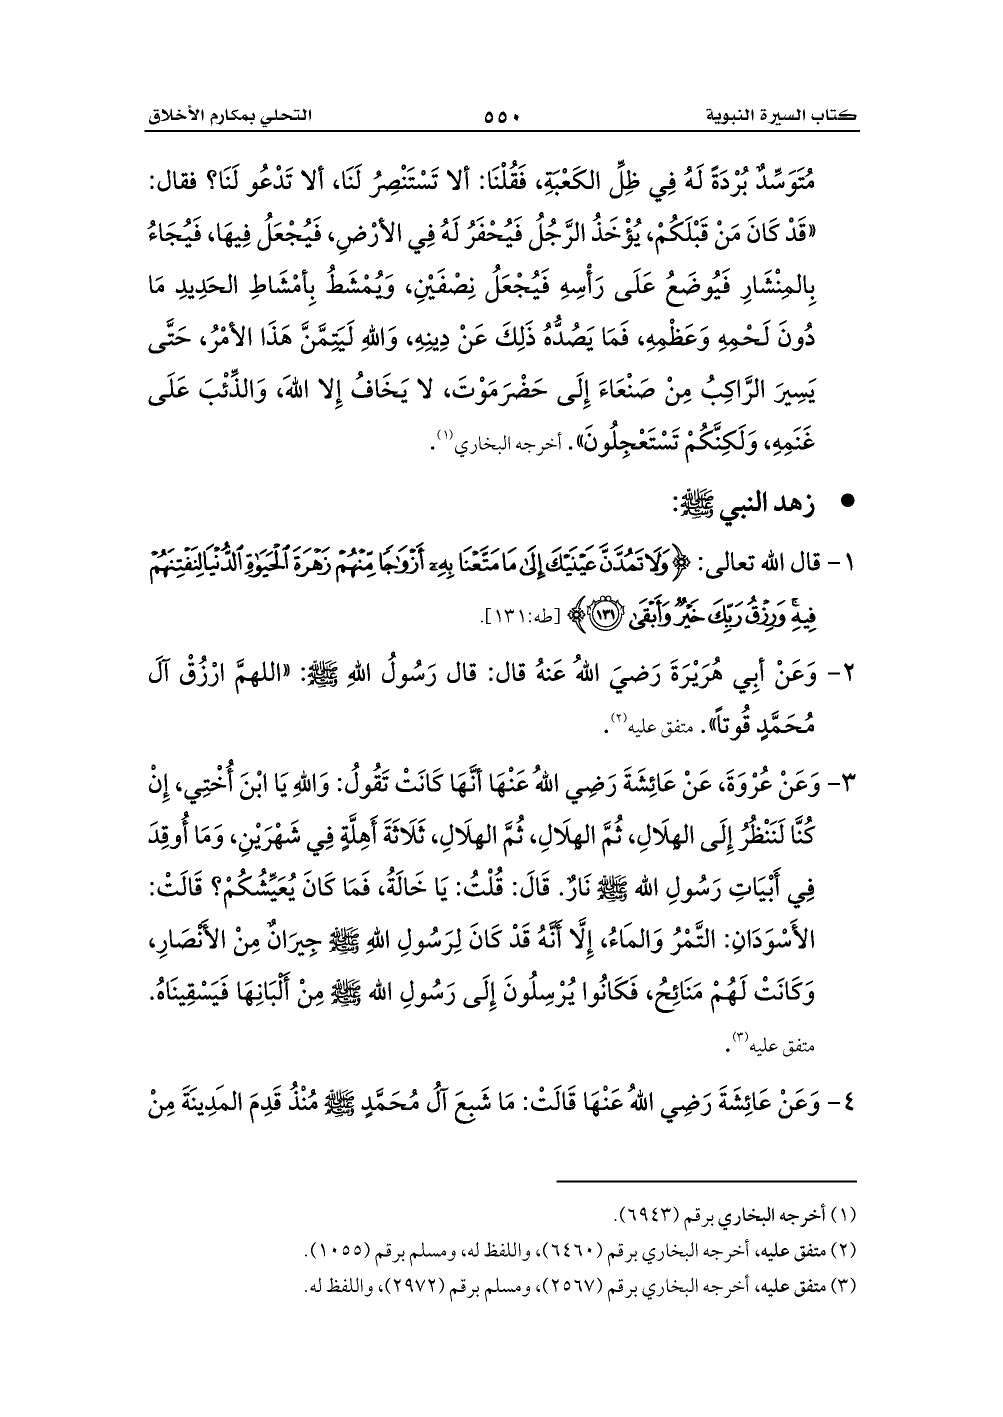 كتاب السيرة النبوية ٥٥٠ التحلي بمكارم الأخلاق
مُتَوَسِّدٌ بُرْدَةً لَهُ فِي ظِلِّ الكَعْبَةِ، فَقُلْنَا: ألا تَسْتَنْصِرُ لَنَا، ألا تَدْعُو لَنَا؟ فقال:
«قَدْ كَانَ مَنْ قَبْلَكُمْ، يُؤْخَذُ الرَّجُلُ فَيُحْفَرُ لَهُ فِي الأرْضِ، فَيُجْعَلُ فِيهَا، فَيُجَاءُ
بِالمِنْشَارِ فَيُوضَعُ عَلَى رَأْسِهِ فَيُجْعَلُ نِصْفَيْنِ، وَيُمْشَطُ بِأمْشَاطِ الحَدِيدِ مَا
دُونَ لَحْمِهِ وَعَظْمِهِ، فَمَا يَصُدُّهُ ذَلِكَ عَنْ دِينِهِ، وَاللهِ لَيَتِمَّنَّ هَذَا الأمْرُ، حَتَّى
يَسِيرَ الرَّاكِبُ مِنْ صَنْعَاءَ إِلَى حَضْرَمَوْتَ، لا يَخَافُ إِلا اللهَ، وَالذِّئْبَ عَلَى
غَنَمِهِ، وَلَكِنَّكُمْ تَسْتَعْجِلُونَ». أخرجه البخاري(١).
● زهد النبي ﷺ:
١- قال الله تعالى: ﴿وَلَا تَمُدَّنَّ عَيْنَيْكَ إِلَىٰ مَا مَتَّعْنَا بِهِۦٓ أَزْوَٰجًا مِّنْهُمْ زَهْرَةَ ٱلْحَيَوٰةِ ٱلدُّنْيَا لِنَفْتِنَهُمْ
فِيهِ ۚ وَرِزْقُ رَبِّكَ خَيْرٌ وَأَبْقَىٰ ١٣١﴾ [طه:١٣١].
٢- وَعَنْ أبِي هُرَيْرَةَ رَضيَ اللهُ عَنهُ قال: قال رَسُولُ اللهِ ﷺ: «اللهمَّ ارْزُقْ آلَ
مُحَمَّدٍ قُوتاً». متفق عليه(٢).
٣- وَعَنْ عُرْوَةَ، عَنْ عَائِشَةَ رَضِي اللهُ عَنْهَا أنَّهَا كَانَتْ تَقُولُ: وَاللهِ يَا ابْنَ أُخْتِي، إِنْ
كُنَّا لَنَنْظُرُ إِلَى الهِلَالِ، ثُمَّ الهِلَالِ، ثُمَّ الهِلَالِ، ثَلَاثَةَ أَهِلَّةٍ فِي شَهْرَيْنِ، وَمَا أُوقِدَ
فِي أَبْيَاتِ رَسُولِ الله ﷺ نَارٌ. قَالَ: قُلْتُ: يَا خَالَةُ، فَمَا كَانَ يُعَيِّشُكُمْ؟ قَالَتْ:
الأَسْوَدَانِ: التَّمْرُ وَالمَاءُ، إِلَّا أَنَّهُ قَدْ كَانَ لِرَسُولِ اللهِ ﷺ جِيرَانٌ مِنْ الأَنْصَارِ،
وَكَانَتْ لَهُمْ مَنَائِحُ، فَكَانُوا يُرْسِلُونَ إِلَى رَسُولِ الله ﷺ مِنْ أَلْبَانِهَا فَيَسْقِينَاهُ.
متفق عليه(٣).
٤- وَعَنْ عَائِشَةَ رَضِي اللهُ عَنْهَا قَالَتْ: مَا شَبِعَ آلُ مُحَمَّدٍ ﷺ مُنْذُ قَدِمَ المَدِينَةَ مِنْ
(١) أخرجه البخاري برقم (٦٩٤٣).
(٢) متفق عليه، أخرجه البخاري برقم (٦٤٦٠)، واللفظ له، ومسلم برقم (١٠٥٥).
(٣) متفق عليه، أخرجه البخاري برقم (٢٥٦٧)، ومسلم برقم (٢٩٧٢)، واللفظ له.